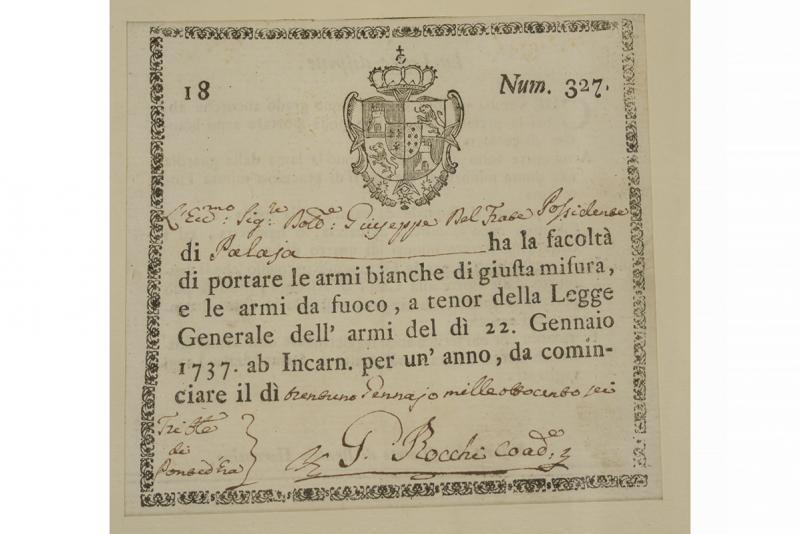 18
Num. 327.
L'Ecc.mo Sig.re Dott.e Giuseppe Del Frate Possidente
di Palaja ha la facoltà
di portare le armi bianche di giuſta miſura,
e le armi da fuoco, a tenor della Legge
Generale dell' armi del dì 22. Gennaio
1737. ab Incarn. per un' anno, da comin-
ciare il dì trentuno Gennajo milleottocento sei
di
Pontedera
G. Rocchi Coad.e